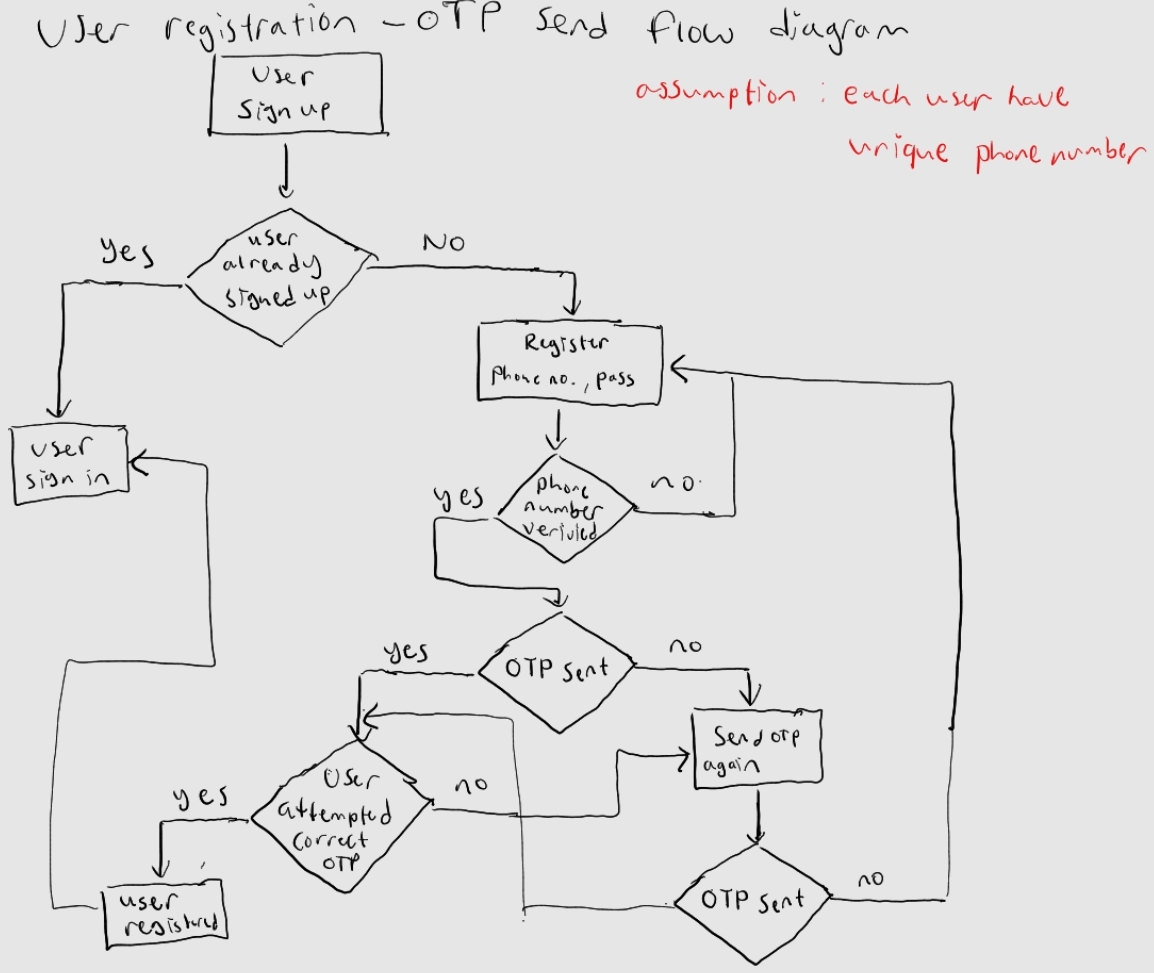 User registration - OTP send flow diagram
assumption : each user have
unique phone number
User
Sign up
user
already
signed up
Yes
NO
Register
Phone no., pass
user
sign in
phone
number
verified
yes
no.
OTP sent
yes
no
Send OTP
again
User
attempted
correct
OTP
yes
no
OTP sent
no
user
registered